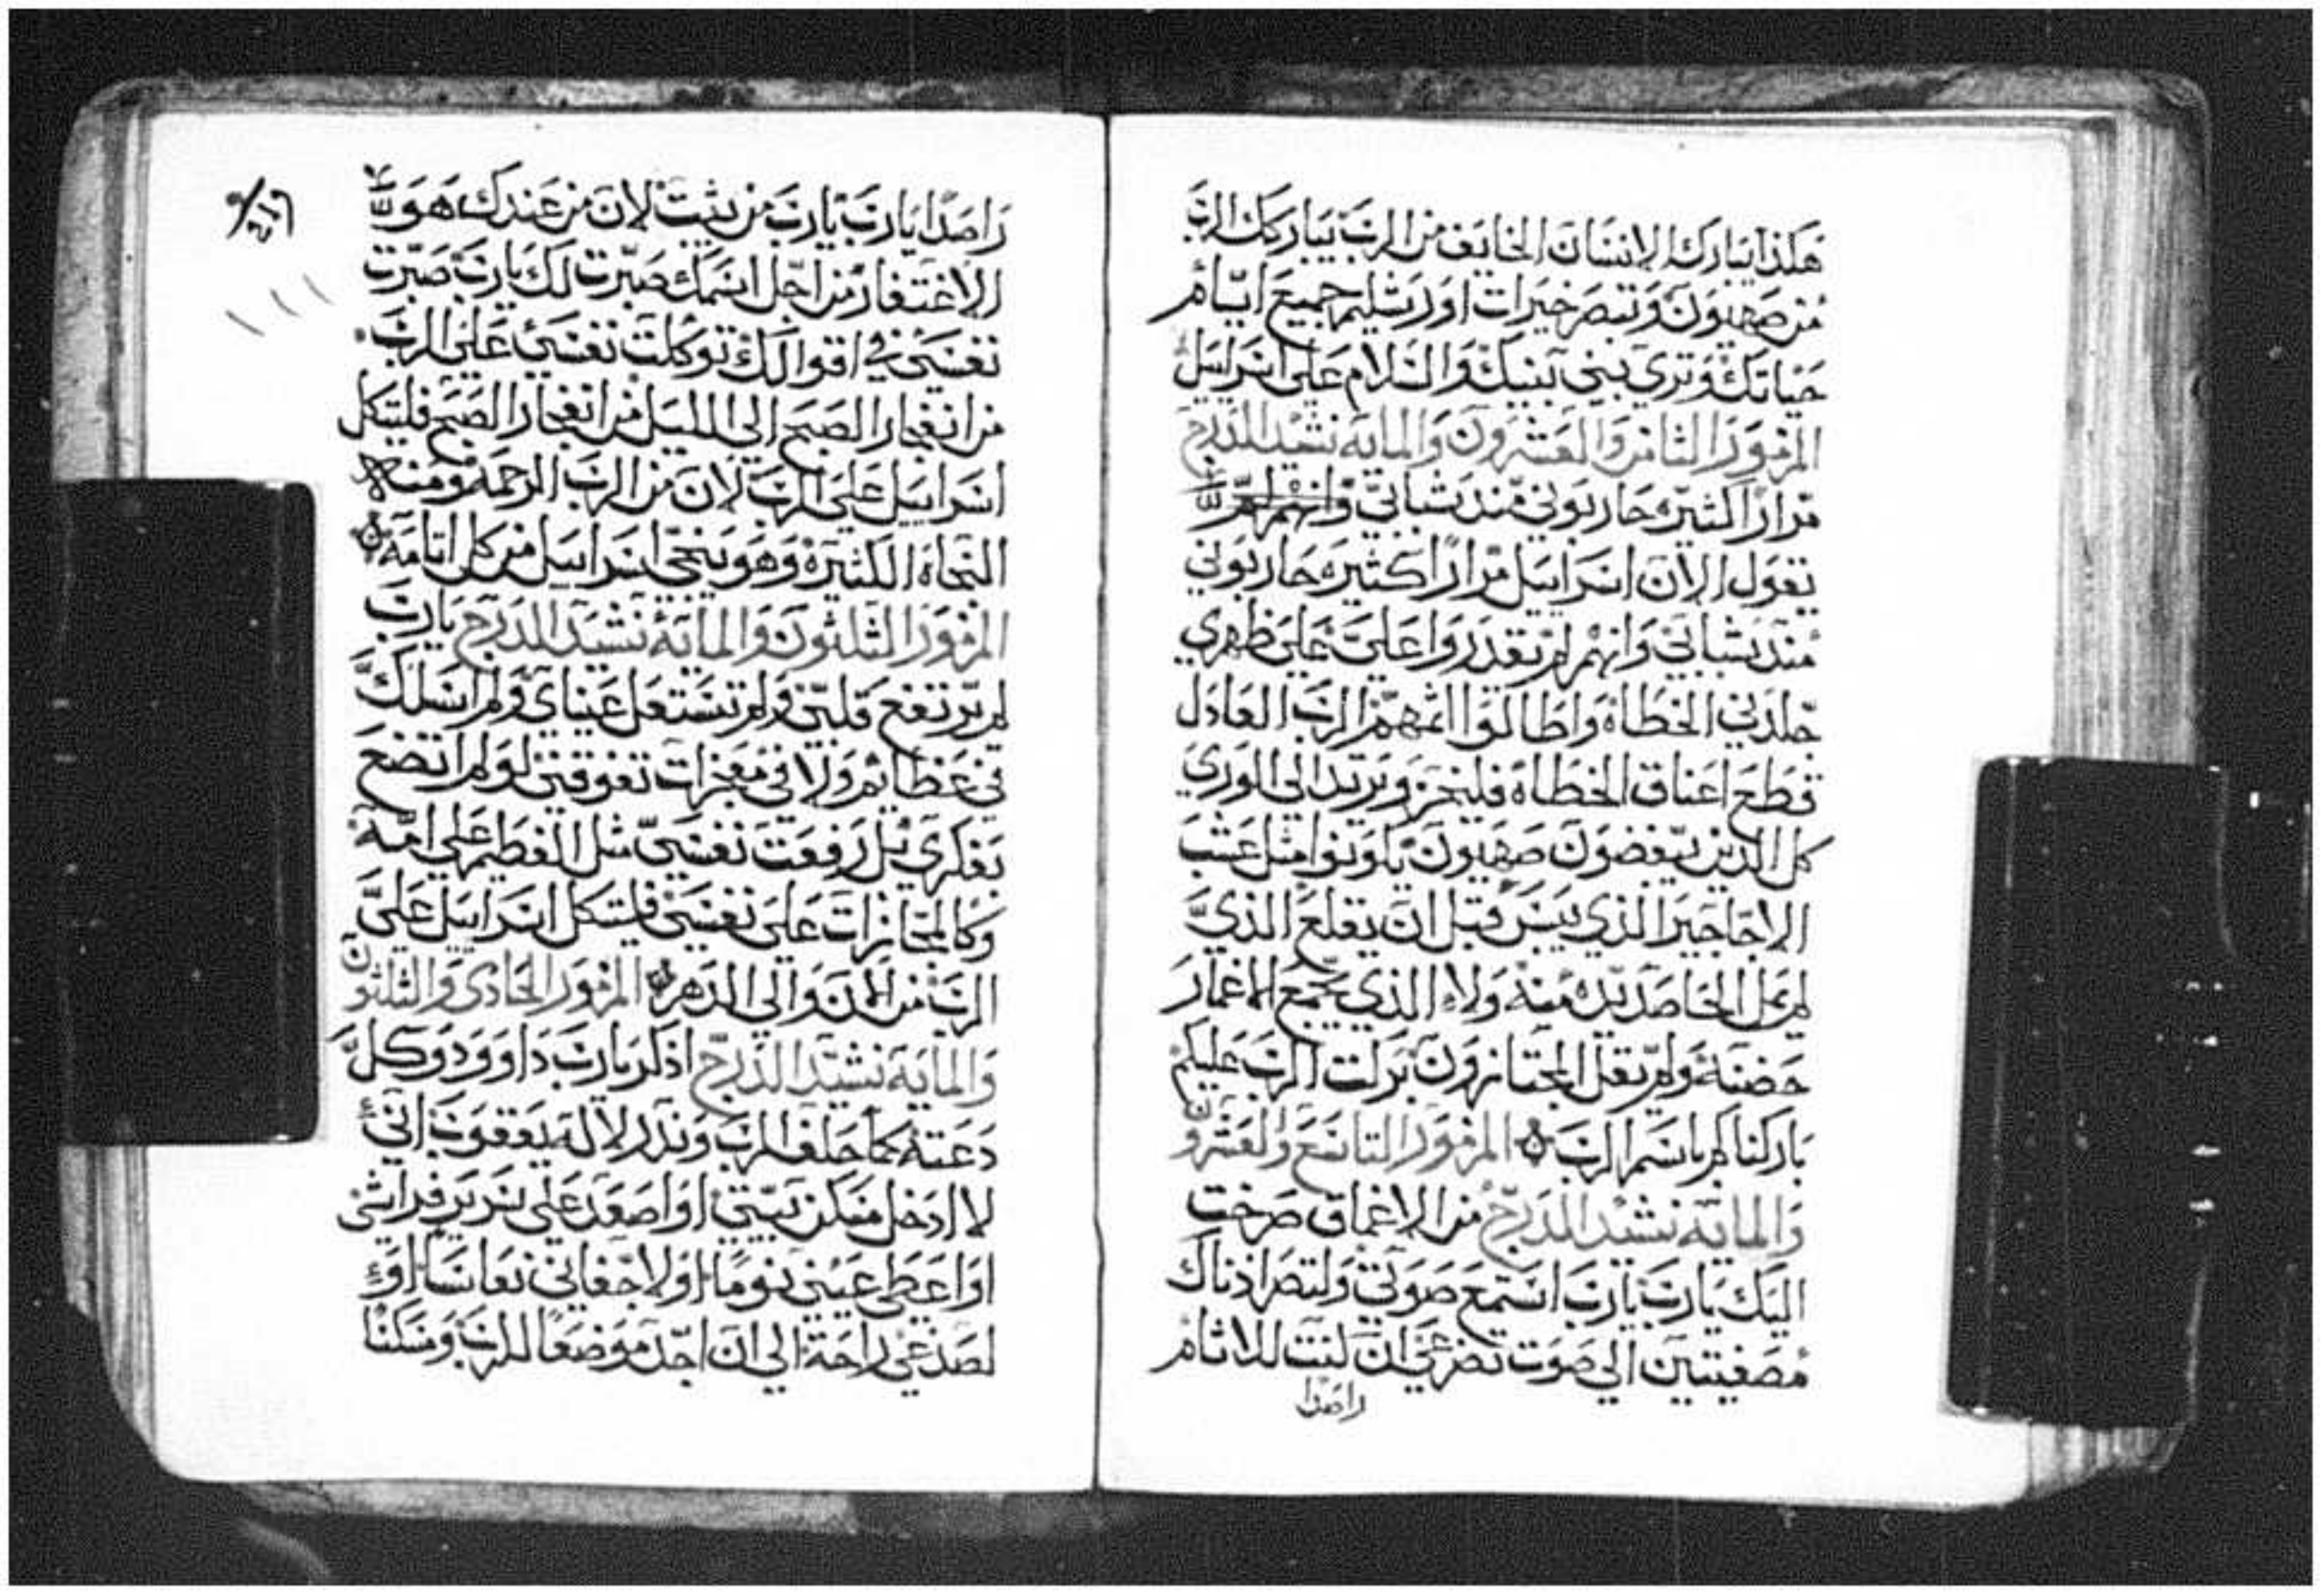 هكذا يبارك الانسان الخايف من الرب يباركك الرب
من صهيون وتبصر خيرات اورشليم جميع ايام
حياتك وتري بني بنيك والسلام على اسراييل
المزمور الثامن والعشرون والمايه نشيد الدرج
مرارا كثيره حاربوني منذ شبابي وانهم لم
تقول الان اسراييل مرارا كثيره حاربوني
منذ شبابي وانهم لم يقدروا علي على ظهري
جلدني الخطاه واطالوا اثمهم الرب العادل
قطع اعناق الخطاه فليخز ويرتد الي الوري
كل الذين يبغضون صهيون يكونوا مثل عشب
الاجاجير الذي ييبس قبل ان يقلع الذي
لم يمل الحاصد يده منه ولا الذي يجمع الاغمار
حضنه ولم يقل المجتازون بركت الرب عليكم
باركناكم باسم الرب المزمور التاسع والعشرون
والمايه نشيد الدرج من الاعماق صرخت
اليك يارب يارب استمع صوتي ولتصر اذناك
مصغيتين الي صوت تضرعي ان كنت للاثام
راصدا
راصدا يارب يارب من يثبت لان من عندك هو
الاغتفار من اجل اسمك صبرت لك يارب صبرت
نفسي في اقوالك توكلت نفسي على الرب
من انفجار الصبح الي الليل من انفجار الصبح فليتكل
اسراييل على الرب لان من الرب الرحمه ومنه
النجاه الكثيرة وهو ينجي اسراييل من كل اثامه
المزمور الثلثون والمايه نشيد الدرج يارب
لم يرتفع قلبي ولم تستعل عيناي ولم اسلك
في عظايم ولا في معجزات تفوقني لو لم اتضع
بفكري بل رفعت نفسي مثل الفطيم على امه
وكالمجازات على نفسي فليتكل اسراييل على
الرب من الان والي الدهر المزمور الحادي والثلثون
والمايه نشيد الدرج اذكر يارب داوود وكل
دعته كما حلف للرب ونذر لاله يعقوب اني
لا ادخل مسكن بيتي او اصعد على سرير فراشي
او اعطي عيني نوما او لاجفاني نعاسا او
لصدغي راحة الي ان اجد موضعا للرب ومسكنا